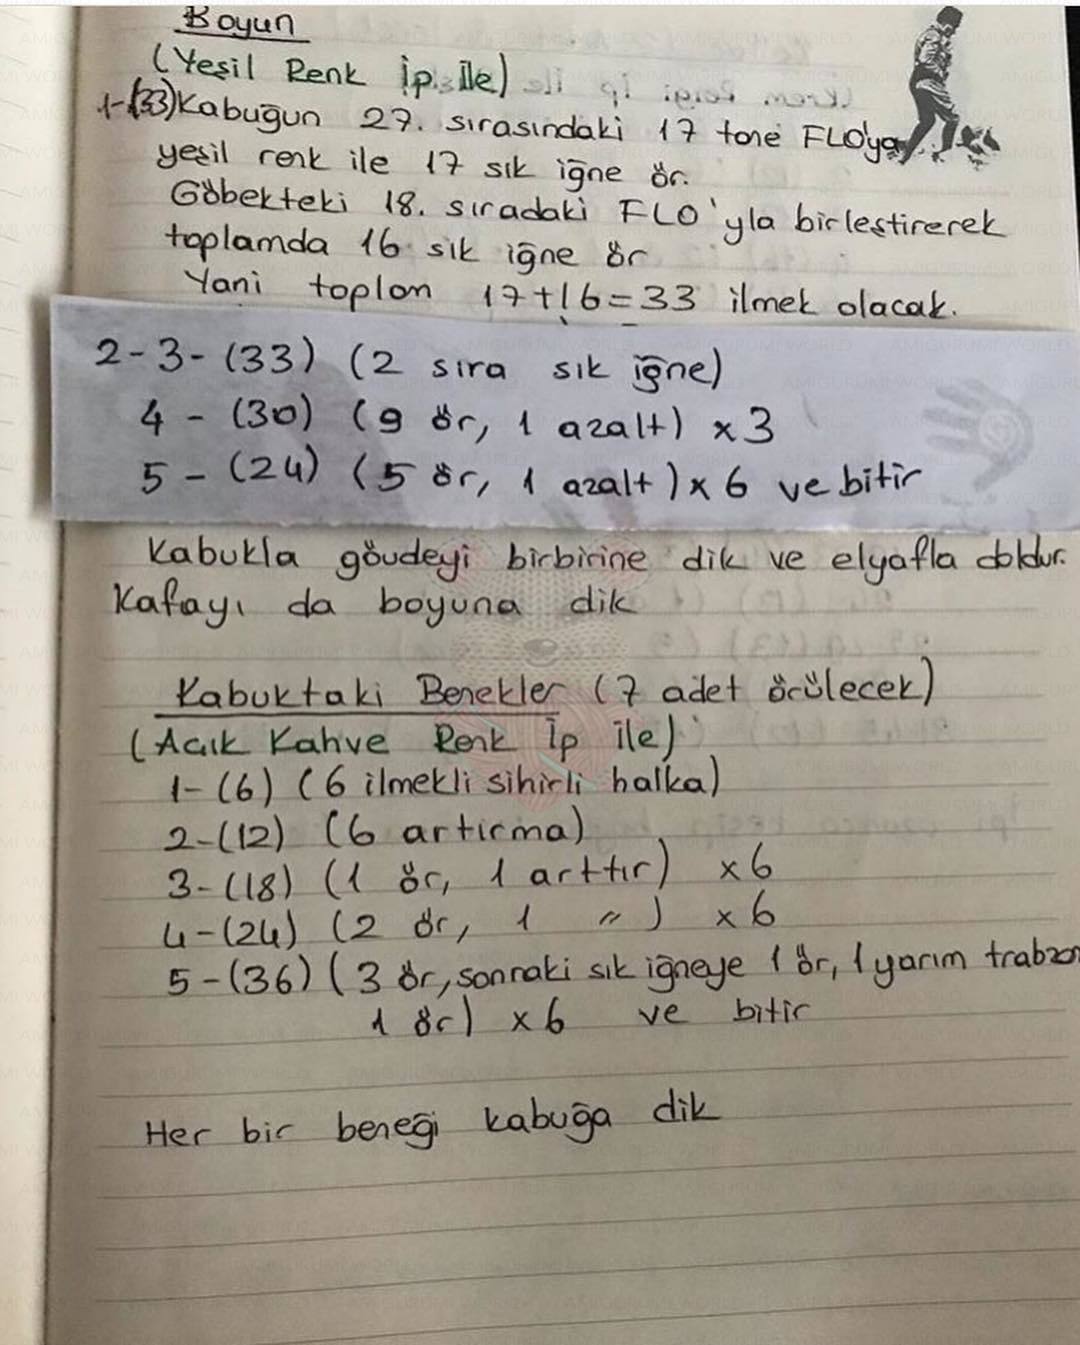 Boyun
(Yeşil Renk İp ile)
1-(33) Kabuğun 27. sırasındaki 17 tane FLO'ya
yeşil renk ile 17 sık iğne ör.
Göbekteki 18. sıradaki FLO'yla birleştirerek
toplamda 16 sık iğne ör
Yani toplam 17+16=33 ilmek olacak.
2-3-(33) (2 sıra sık iğne)
4-(30) (9 ör, 1 azalt) x3
5-(24) (5 ör, 1 azalt) x 6 ve bitir
Kabukla gövdeyi birbirine dik ve elyafla doldur.
Kafayı da boyuna dik
Kabuktaki Benekler (7 adet örülecek)
(Açık Kahve Renk İp ile)
1-(6) (6 ilmekli sihirli halka)
2-(12) (6 artırma)
3-(18) (1 ör, 1 arttır) x6
4-(24) (2 ör, 1 〃) x6
5-(36) (3 ör, sonraki sık iğneye 1 ör, 1 yarım trabzan
1 ör) x6 ve bitir
Her bir beneği kabuğa dik